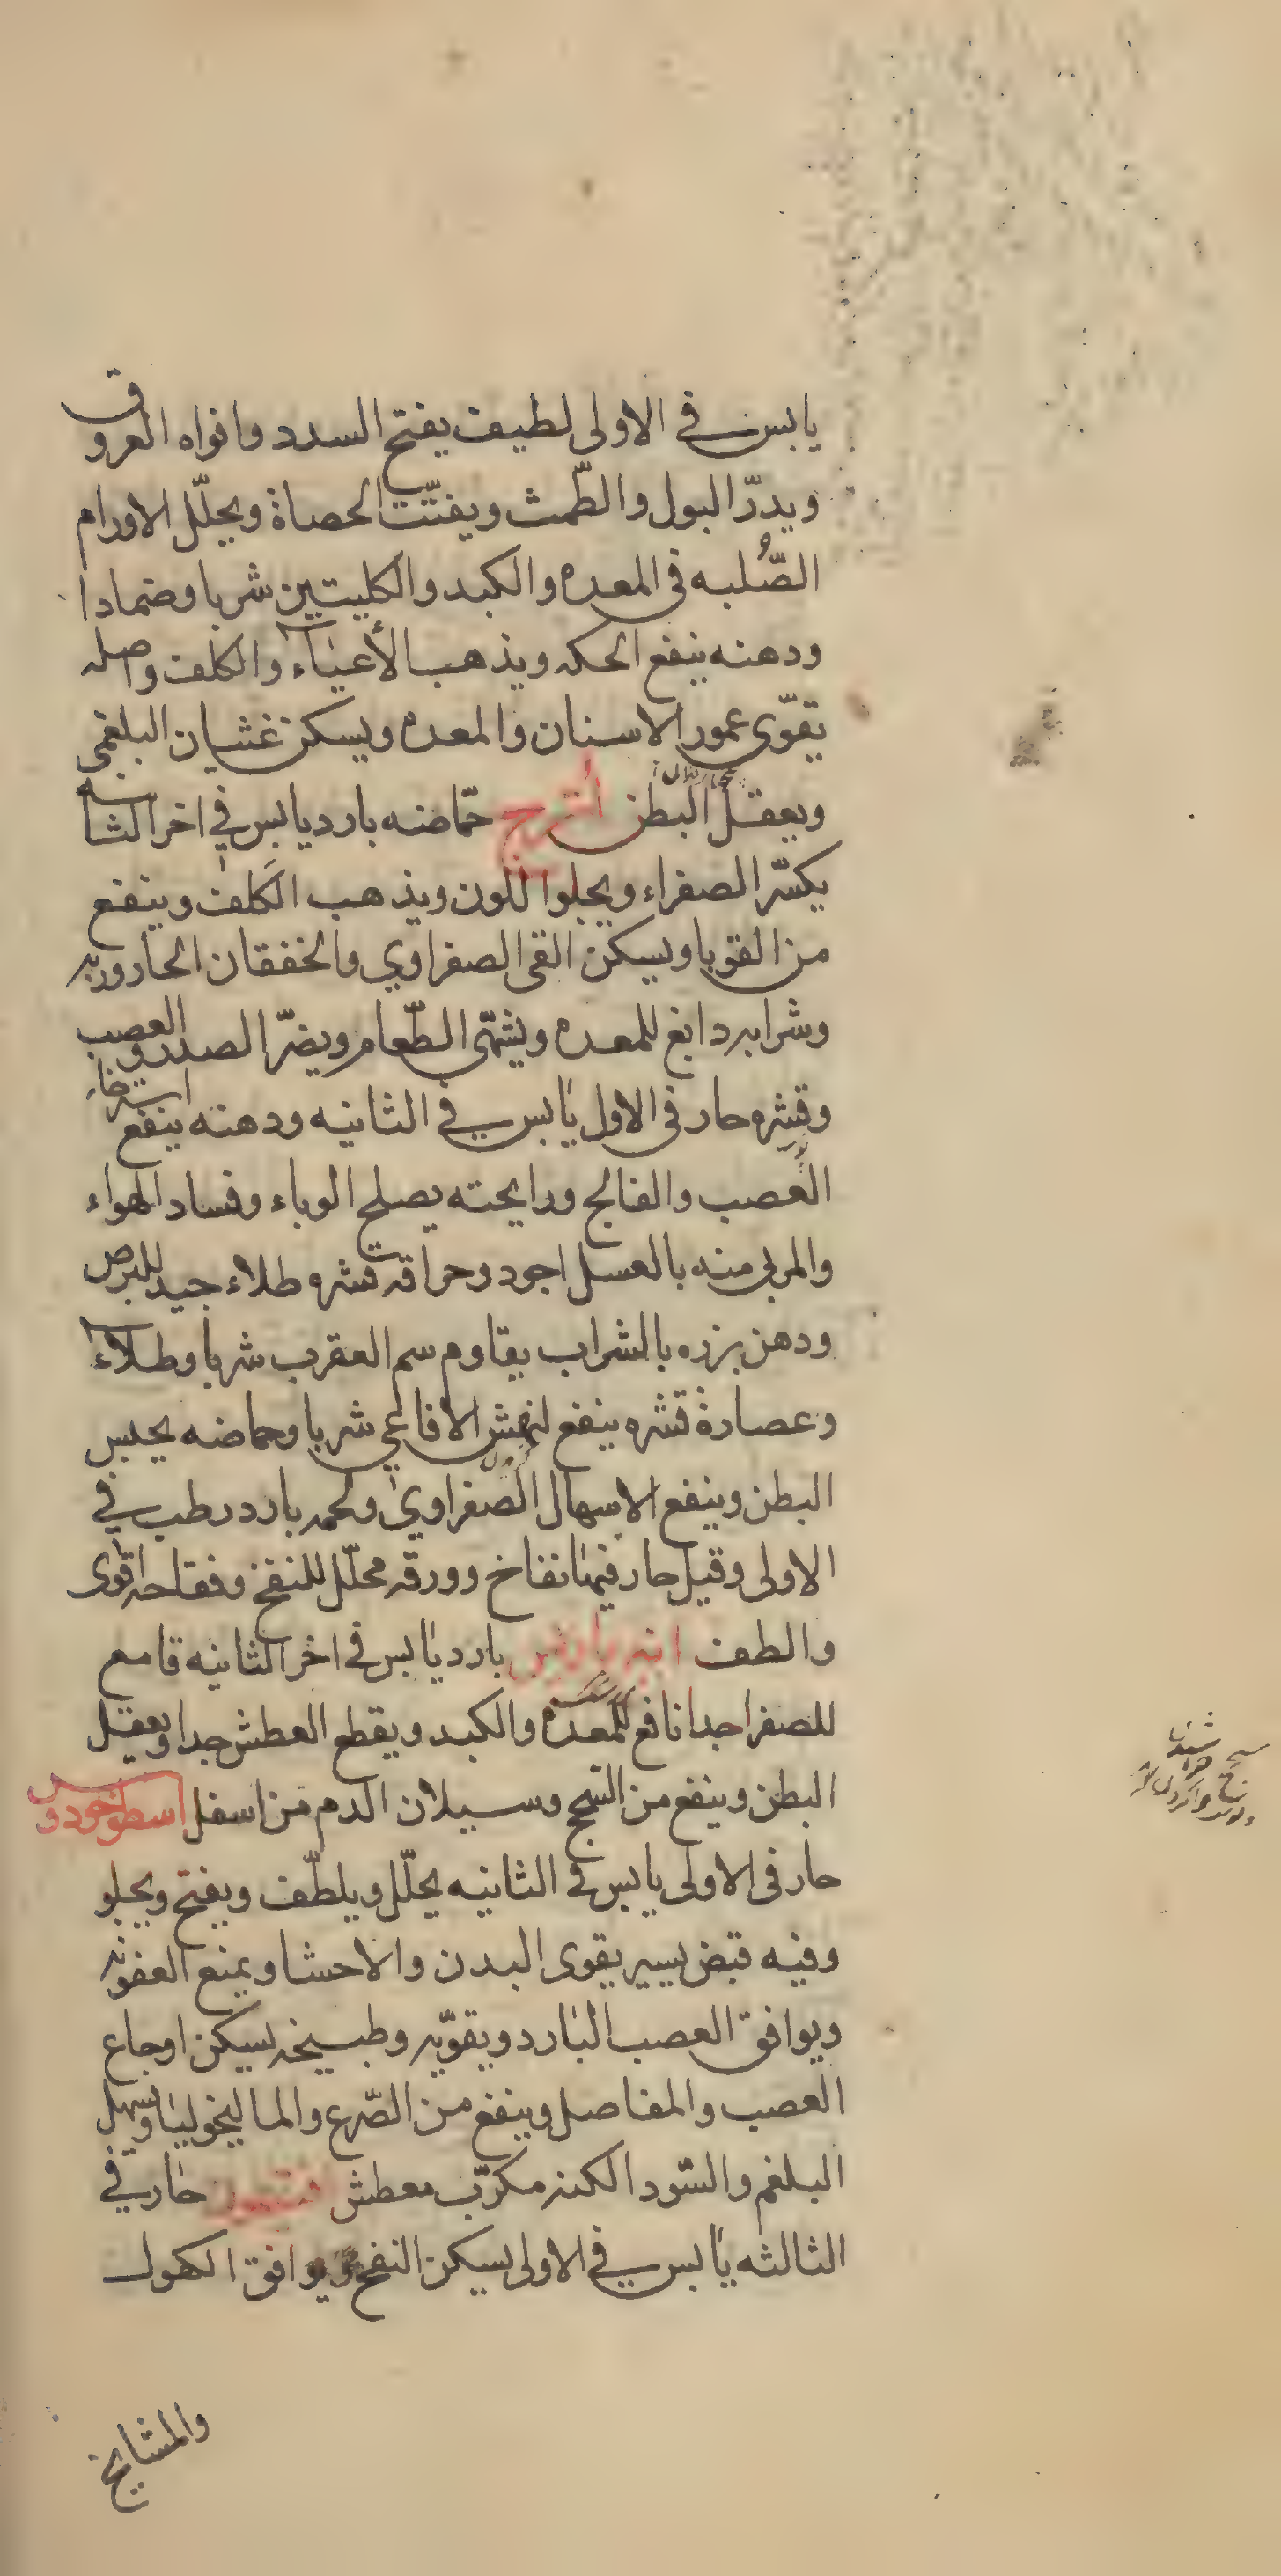 يابس في الاولى لطيف يفتح السدد وافواه العروق
ويدرّ البول والطّمث ويفتّت الحصاة ويحلّل الاورام
الصُّلبه فى المعده والكبد والكليتين شربا وضمادا
ودهنه ينفع الحكه ويذهب الأعياء والكلف واصله
يقوّى عمور الاسنان والمعده ويسكن غشيان البلغمى
ويعقل البطن أترج حمّاضه بارد يابس في اخر الثالثه
يكسّر الصفراء ويجلوا اللون ويذهب الكَلف وينفع
من القوبا ويسكن القى الصفراوي والخفقان الحار وربه
وشرابه دابغ للمعده ويشهّى الطّعام ويضرّ الصدر والعصب
وقشره حار فى الاول يابس في الثانيه ودهنه ينفع استرخاء
العصب والفالج ورايحته يصلح الوباء وفساد الهواء
والمربى منه بالعسل اجود وحراقه قشره طلاء جيد للبرص
ودهن بزره بالشراب يقاوم سم العقرب شربا وطلاء
وعصارة قشره ينفع لنهش الافاعي شربا وحماضه يحبس
البطن وينفع الاسهال الصفراوي ولحمه بارد رطب في
الاولى وقيل حار فيها نفاخ وورقه محلّل للنفخ وفقاحه اقوى
والطف انبرباريس بارد يابس في اخر الثانيه قامع
للصفرا جدا نافع للمعده والكبد ويقطع العطش جدا ويعقل
البطن وينفع من السّحج وسيلان الدم من اسفل اسطوخودوس
حار فى الاولى يابس في الثانيه يحلّل ويلطّف ويفتح ويجلو
وفيه قبض يسير يقوى البدن والاحشا ويمنع العفونه
ويوافق العصب البارد ويقوّيه وطبيخه يسكن اوجاع
العصب والمفاصل وينفع من الصّرع والماليخوليا ويسهل
البلغم والسّودا لكنه مكرّب معطش افتيمون حار في
الثالثه يابس في الاولى يسكن النفخ ويوافق الكهول
والمشايخ